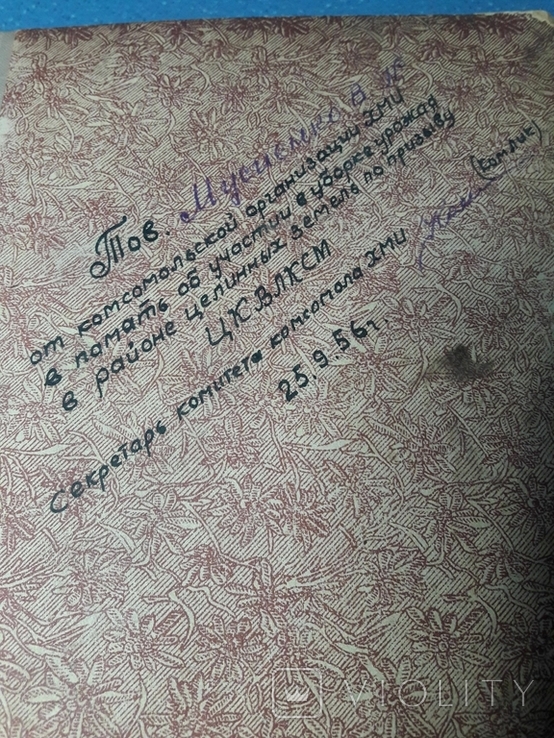 Тов. Мусиенко В.
от комсомольской организации ХМИ
в память об участии в уборке урожая
в районе целинных земель по призыву
ЦКВЛКСМ
Секретарь комитета комсомола ХМИ
25.9.56г.
VIOLITY